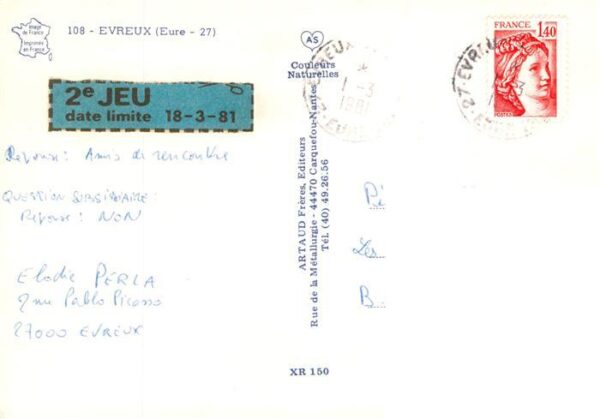 Image
de France
Imprimée
en France
108 - EVREUX (Eure - 27)
2e JEU
date limite 18-3-81
Réponse : Amis de rencontre
QUESTION SUBSIDIAIRE :
Réponse : NON
Elodie PERLA
2 rue Pablo Picasso
27000 EVREUX
AS
Couleurs
Naturelles
ARTAUD Frères, Editeurs
Rue de la Métallurgie - 44470 Carquefou-Nantes
Tél. (40) 49.26.56
XR 150
EVREUX
1-3
1981
EURE
FRANCE
1,40
POSTES
27-EVREUX
Pi
Les
B